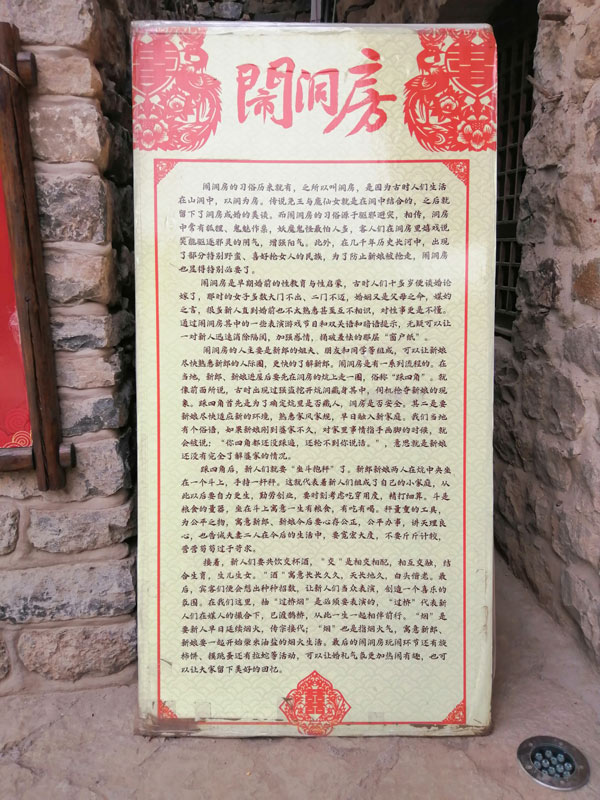 闹洞房
闹洞房的习俗历来就有，之所以叫洞房，是因为古时人们生活
在山洞中，以洞为房。传说尧王与鹿仙女就是在洞中结合的，之后就
留下了洞房成婚的美谈。而闹洞房的习俗源于驱邪避灾，相传，洞房
中常有狐狸、鬼魅作祟，妖魔鬼怪最怕人多，客人们在洞房里嬉戏说
笑能驱逐邪灵的阴气，增强阳气。此外，在几千年历史长河中，出现
了部分特别野蛮、喜好抢女人的民族，为了防止新娘被抢走，闹洞房
也显得特别必要了。
闹洞房是早期婚前的性教育与性启蒙，古时人们十多岁便谈婚论
嫁了，那时的女子多数大门不出、二门不迈，婚姻又是父母之命，媒妁
之言，很多新人直到婚前也不太熟悉甚至互不相识，对性事更是不懂。
通过闹洞房其中的一些表演游戏节目和双关语和暗语提示，尤既可以让
一对新人迅速消除隔阂，加强感情，捅破羞怯的那层“窗户纸”。
闹洞房的人主要是新郎的姐夫、朋友和同学等组成，可以让新娘
尽快熟悉新郎的人际圈，更快的了解新郎。闹洞房是有一系列流程的，在
当地，新郎、新娘进屋后要先在洞房的炕上走一圈，俗称“踩四角”。就
像前面所说，古时出现过预盗挖开炕洞藏身其中，伺机抢夺新娘的现
象。踩四角首先是为了确定炕里是否藏人，洞房是否安全，其二是要
新娘尽快适应新的环境，熟悉家风家规，早日融入新家庭。我们当地
有个俗语，如果新娘刚到婆家不久，对家里事情指手画脚的时候，就
会被说：“你四角都还没踩遍，还轮不到你说话。”，意思就是新娘
还没有完全了解婆家的情况。
踩四角后，新人们就要“坐斗抱秤”了。新郎新娘两人在炕中央坐
在一个斗上，手持一杆秤。这就代表着新人们组成了自己的小家庭，从
此以后要自力更生，勤劳创业，要时刻考虑吃穿用度，精打细算。斗是
粮食的量器，坐在斗上寓意一生有粮食，有吃有喝。秤量重的工具，
为公平之物，寓意新郎、新娘今后要心存公正，公平办事，讲天理良
心，也告诫夫妻二人在今后的生活中，要宽宏大度，不要斤斤计较，
营营苟苟过于苛求。
接着，新人们要共饮交杯酒，“交”是相交相配，相互交融，结
合生育，生儿生女。“酒”寓意长长久久，天长地久，白头偕老。最
后，宾客们便会想出种种招数，让新人们当众表演，创造一个喜乐的
氛围。在我们这里，抽“过桥烟”是必须要表演的，“过桥”代表新
人们在媒人的撮合下，已渡鹊桥，从此一生一起相伴前行。“烟”是
要新人早日延续烟火，传宗接代；“烟”也是指烟火气，寓意新郎、
新娘要一起开始柴米油盐的烟火生活。最后的闹洞房玩闹环节还有烧
柿饼、摸跳蚤还有拉蛇等活动，可以让婚礼气氛更加热闹有趣，也可
以让大家留下美好的回忆。